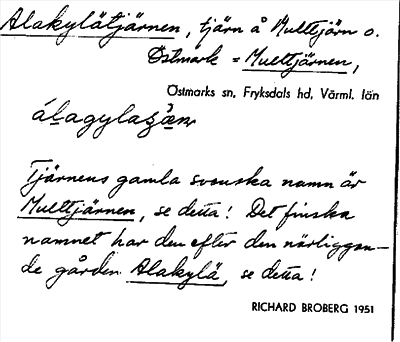 Alakylätjärnen, tjärn å Multtjärn o.
Östmark = Multtjärnen,
Östmarks sn, Fryksdals hd, Värml. län
Tjärnens gamla svenska namn är
Multtjärnen, se detta! Det finska
namnet har den efter den närliggan-
de gården Alakylä, se detta!
RICHARD BROBERG 1951